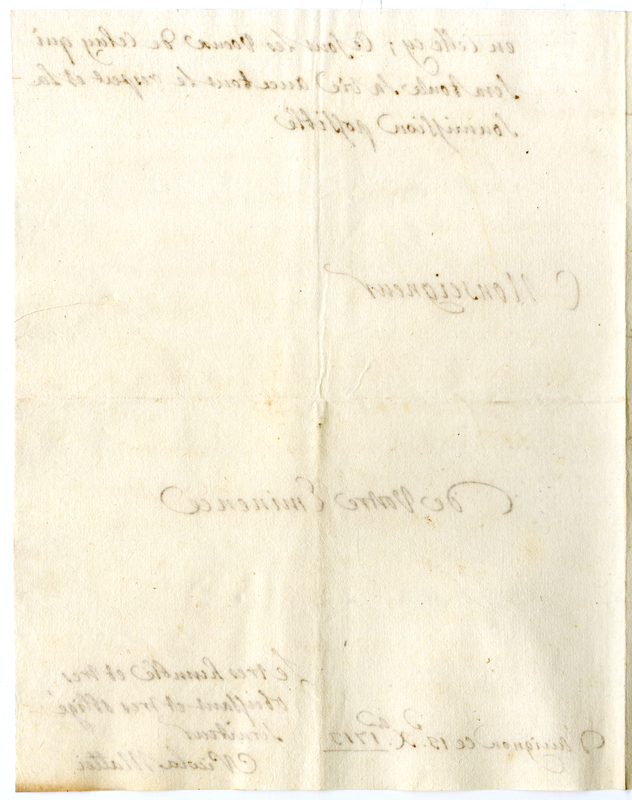 en celle cy; Ce sont les voeux de Celuy qui
sera toute sa vie avec tout le respect et la
soumission possible
Monseigneur
De Votre Eminence
Le tres humble et tres
obeissant et tres obligé
serviteur
Nicola Mattei
Avignon ce 15. X.bre 1713